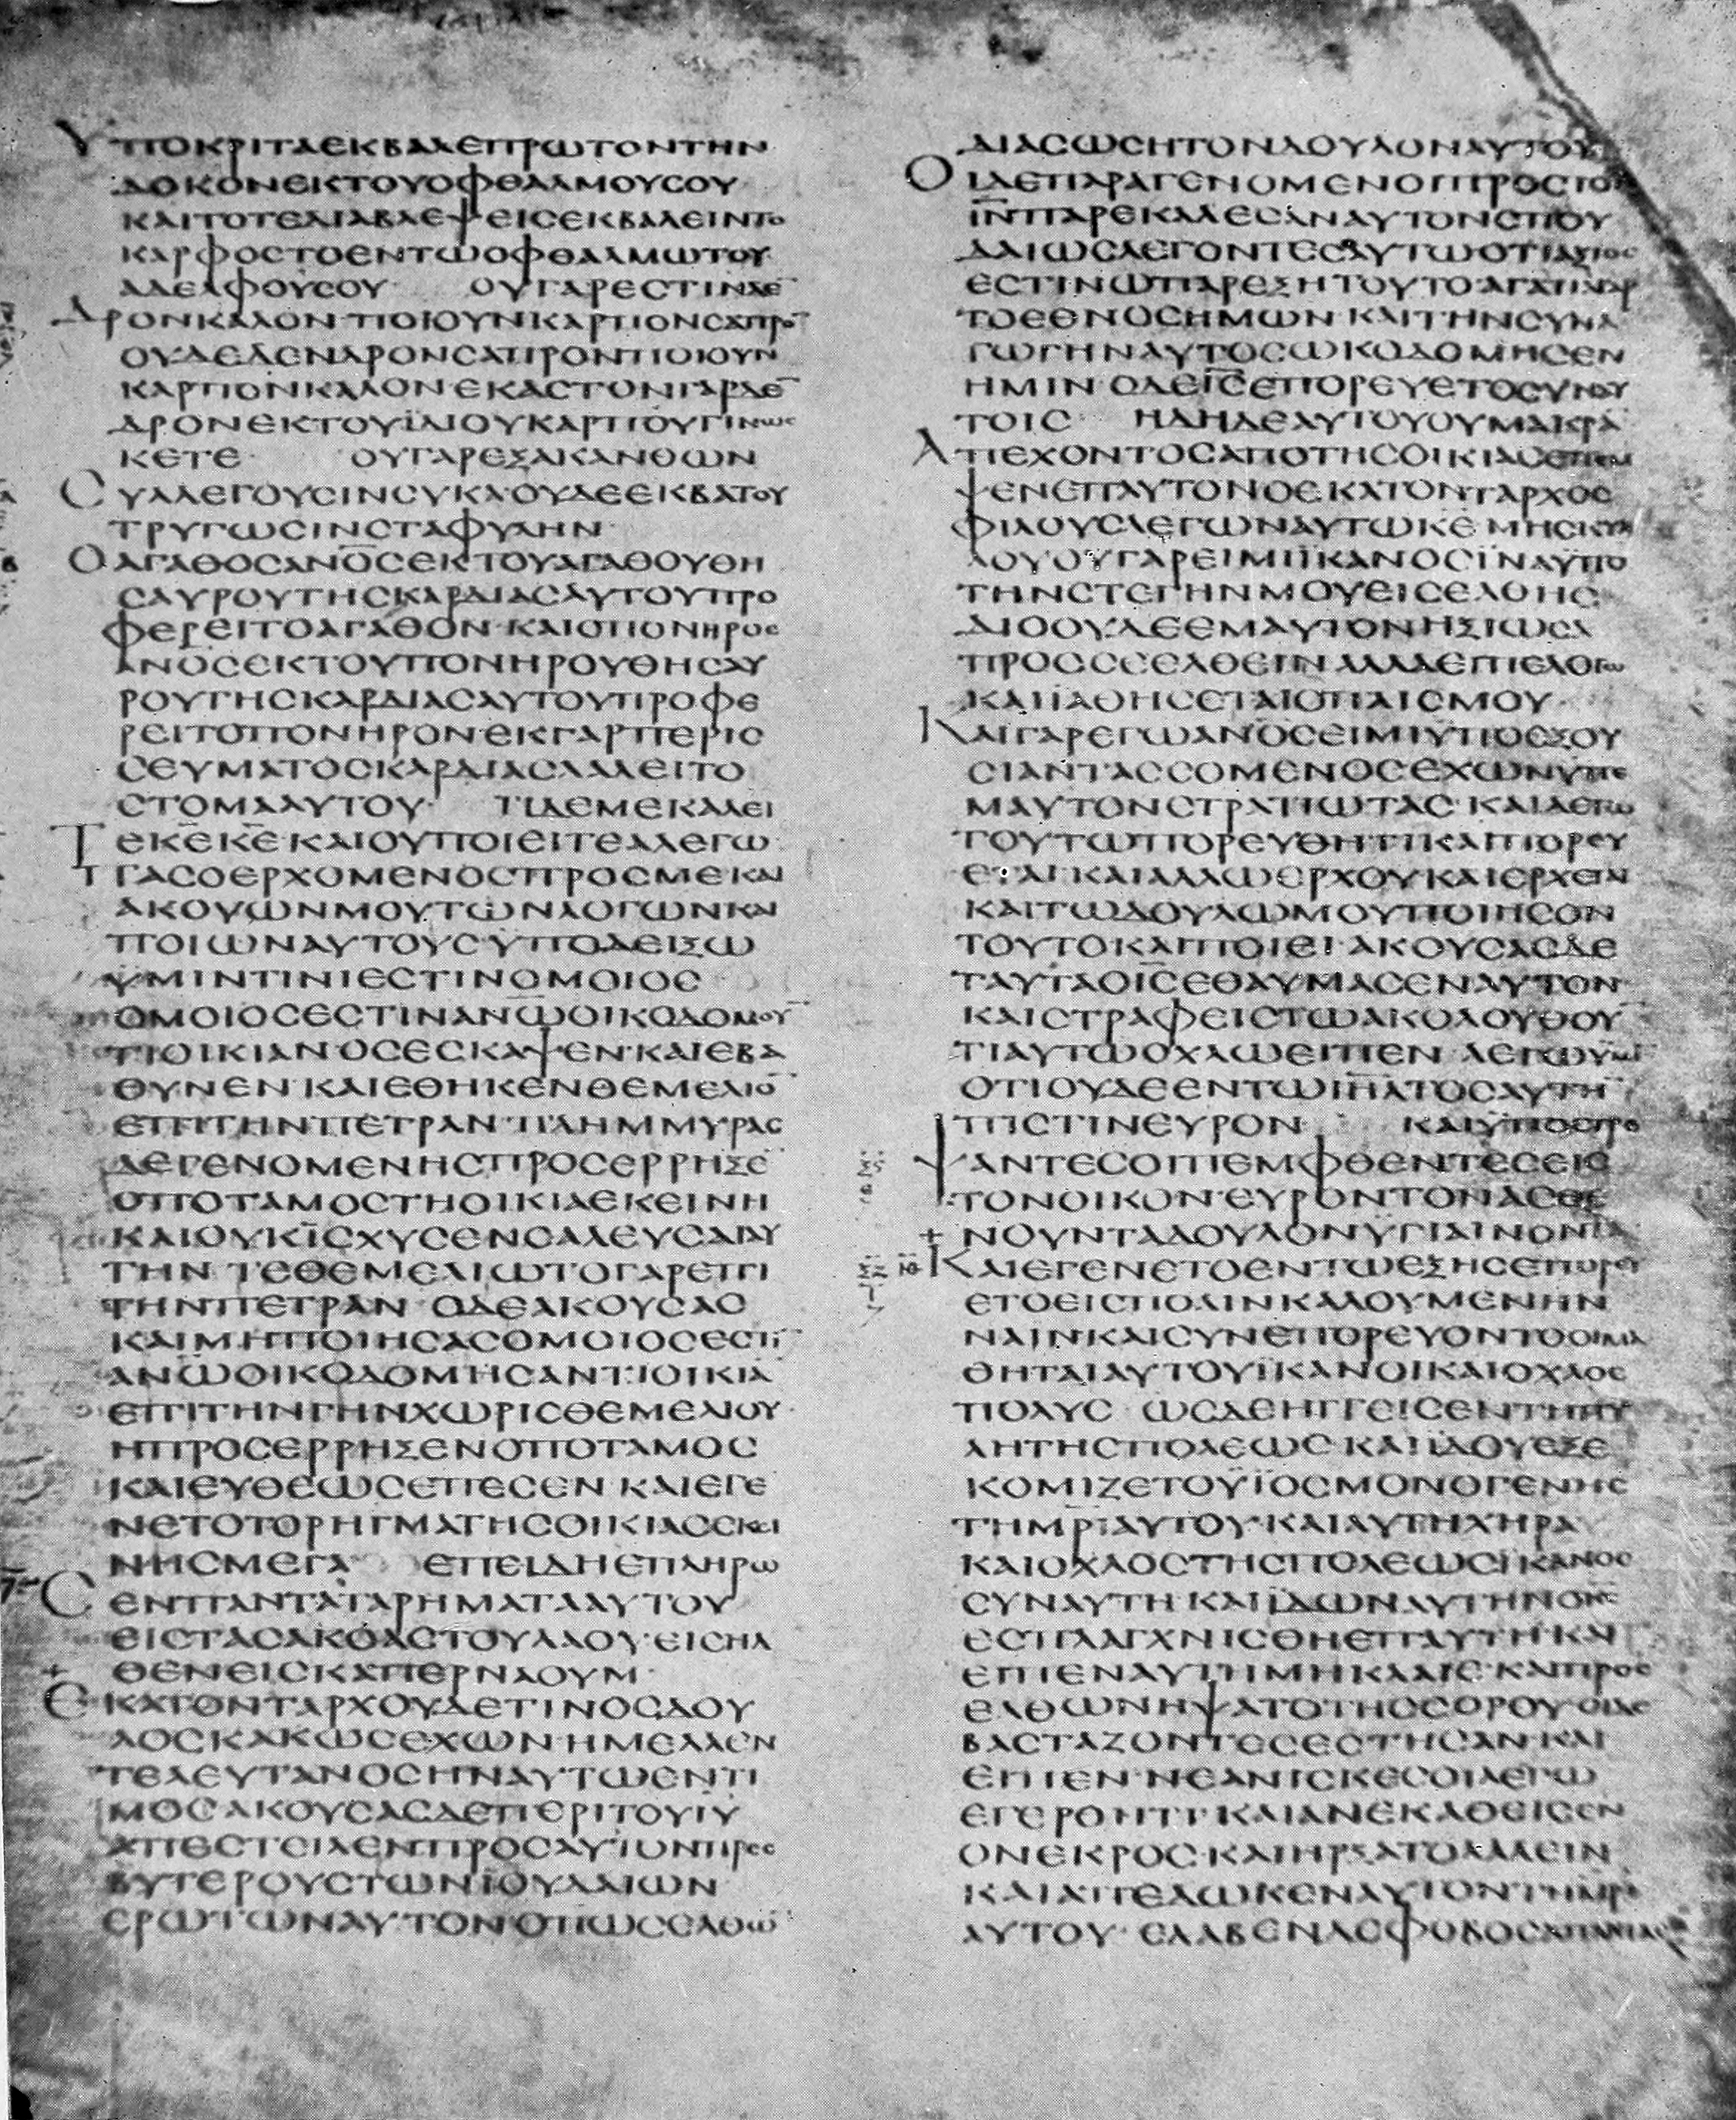 ΥΠΟΚΡΙΤΑΕΚΒΑΛΕΠΡΩΤΟΝΤΗΝ
ΔΟΚΟΝΕΚΤΟΥΟΦΘΑΛΜΟΥΣΟΥ
ΚΑΙΤΟΤΕΔΙΑΒΛΕΨΕΙΣΕΚΒΑΛΕΙΝΤΟ
ΚΑΡΦΟΣΤΟΕΝΤΩΟΦΘΑΛΜΩΤΟΥ
ΑΔΕΛΦΟΥΣΟΥ ΟΥΓΑΡΕΣΤΙΝΔΕ
ΔΡΟΝΚΑΛΟΝ·ΠΟΙΟΥΝΚΑΡΠΟΝΣΑΠΡΟ̅
ΟΥΔΕΔΕΝΔΡΟΝΣΑΠΡΟΝΠΟΙΟΥΝ
ΚΑΡΠΟΝΚΑΛΟΝ·ΕΚΑΣΤΟΝΓΑΡΔΕ̅
ΔΡΟΝΕΚΤΟΥΙΔΙΟΥΚΑΡΠΟΥΓΙΝΩΣ
ΚΕΤΕ· ΟΥΓΑΡΕΞΑΚΑΝΘΩΝ
ΣΥΛΛΕΓΟΥΣΙΝΣΥΚΑ·ΟΥΔΕΕΚΒΑΤΟΥ
ΤΡΥΓΩΣΙΝΣΤΑΦΥΛΗΝ·
ΟΑΓΑΘΟΣΑΝ̅Ο̅Σ̅ΕΚΤΟΥΑΓΑΘΟΥΘΗ
ΣΑΥΡΟΥΤΗΣΚΑΡΔΙΑΣΑΥΤΟΥΠΡΟ
ΦΕΡΕΙΤΟΑΓΑΘΟΝ·ΚΑΙΟΠΟΝΗΡΟΣ
ΑΝΟΣΕΚΤΟΥΠΟΝΗΡΟΥΘΗΣΑΥ
ΡΟΥΤΗΣΚΑΡΔΙΑΣΑΥΤΟΥΠΡΟΦΕ
ΡΕΙΤΟΠΟΝΗΡΟΝ·ΕΚΓΑΡΠΕΡΙΣ
ΣΕΥΜΑΤΟΣΚΑΡΔΙΑΣΛΑΛΕΙΤΟ
ΣΤΟΜΑΑΥΤΟΥ· ΤΙΔΕΜΕΚΑΛΕΙ
ΤΕΚ̅Ε̅Κ̅Ε̅·ΚΑΙΟΥΠΟΙΕΙΤΕΑΛΕΓΩ·
ΠΑΣΟΕΡΧΟΜΕΝΟΣΠΡΟΣΜΕΚΑΙ
ΑΚΟΥΩΝΜΟΥΤΩΝΛΟΓΩΝΚΑΙ
ΠΟΙΩΝΑΥΤΟΥΣΥΠΟΔΕΙΞΩ
ΫΜΙΝΤΙΝΙΕΣΤΙΝΟΜΟΙΟΣ
ΟΜΟΙΟΣΕΣΤΙΝΑΝ̅Ω̅ΟΙΚΟΔΟΜΟΥ̅
ΤΙΟΙΚΙΑΝ·ΟΣΕΣΚΑΨΕΝ·ΚΑΙΕΒΑ
ΘΥΝΕΝ·ΚΑΙΕΘΗΚΕΝΘΕΜΕΛΙΟ̅
ΕΠΙΤΗΝΠΕΤΡΑΝ·ΠΛΗΜΜΥΡΑΣ
ΔΕΓΕΝΟΜΕΝΗΣΠΡΟΣΕΡΡΗΞΕ
ΟΠΟΤΑΜΟΣΤΗΟΙΚΙΑΕΚΕΙΝΗ
ΚΑΙΟΥΚΙΣΧΥΣΕΝΣΑΛΕΥΣΑΙΑΥ
ΤΗΝ ΤΕΘΕΜΕΛΙΩΤΟΓΑΡΕΠΙ
ΤΗΝΠΕΤΡΑΝ ΟΔΕΑΚΟΥΣΑΣ
ΚΑΙΜΗΠΟΙΗΣΑΣΟΜΟΙΟΣΕΣΤΙ̅
ΑΝ̅Ω̅ΟΙΚΟΔΟΜΗΣΑΝΤΙΟΙΚΙΑ̅
ΕΠΙΤΗΝΓΗΝΧΩΡΙΣΘΕΜΕΛΙΟΥ·
ΗΠΡΟΣΕΡΡΗΞΕΝΟΠΟΤΑΜΟΣ
ΚΑΙΕΥΘΕΩΣΕΠΕΣΕΝ·ΚΑΙΕΓΕ
ΝΕΤΟΤΟΡΗΓΜΑΤΗΣΟΙΚΙΑΣΕΚΕΙ
ΝΗΣΜΕΓΑ· ΕΠΕΙΔΗΕΠΛΗΡΩ
ΣΕΝΠΑΝΤΑΤΑΡΗΜΑΤΑΑΥΤΟΥ
ΕΙΣΤΑΣΑΚΟΑΣΤΟΥΛΑΟΥ·ΕΙΣΗΛ
ΘΕΝΕΙΣΚΑΠΕΡΝΑΟΥΜ·
ΕΚΑΤΟΝΤΑΡΧΟΥΔΕΤΙΝΟΣΔΟΥ
ΛΟΣΚΑΚΩΣΕΧΩΝ·ΗΜΕΛΛΕΝ
ΤΕΛΕΥΤΑΝΟΣΗΝΑΥΤΩΕΝΤΙ
ΜΟΣ·ΑΚΟΥΣΑΣΔΕΠΕΡΙΤΟΥΙΥ
ΑΠΕΣΤΕΙΛΕΝΠΡΟΣΑΥΤΟΝΠΡΕΣ
ΒΥΤΕΡΟΥΣΤΩΝΙΟΥΔΑΙΩΝ
ΕΡΩΤΩΝΑΥΤΟΝΟΠΩΣΕΛΘΩ̅
ΔΙΑΣΩΣΗΤΟΝΔΟΥΛΟΝΑΥΤΟΥ
ΟΙΔΕΠΑΡΑΓΕΝΟΜΕΝΟΙΠΡΟΣΤΟΝ
Ι̅Ν̅ΠΑΡΕΚΑΛΕΣΑΝΑΥΤΟΝΣΠΟΥ
ΔΑΙΩΣΛΕΓΟΝΤΕΣΑΥΤΩΟΤΙΑΞΙΟΣ
ΕΣΤΙΝΩΠΑΡΕΞΗΤΟΥΤΟ·ΑΓΑΠΑΓΑΡ
ΤΟΕΘΝΟΣΗΜΩΝ·ΚΑΙΤΗΝΣΥΝΑ
ΓΩΓΗΝΑΥΤΟΣΩΚΟΔΟΜΗΣΕΝ
ΗΜΙΝ·ΟΔΕΙ̅Σ̅ΕΠΟΡΕΥΕΤΟΣΥΝΑΥ
ΤΟΙΣ ΗΔΗΔΕΑΥΤΟΥΟΥΜΑΚΡΑ
ΑΠΕΧΟΝΤΟΣΑΠΟΤΗΣΟΙΚΙΑΣΕΠΕΜ
ΨΕΝΕΠΑΥΤΟΝΟΕΚΑΤΟΝΤΑΡΧΟΣ
ΦΙΛΟΥΣΛΕΓΩΝΑΥΤΩΚ̅Ε̅ΜΗΣΚΥΛ
ΛΟΥΟΥΓΑΡΕΙΜΙΪΚΑΝΟΣΪΝΑΫΠΟ
ΤΗΝΣΤΕΓΗΝΜΟΥΕΙΣΕΛΘΗΣ·
ΔΙΟΟΥΔΕΕΜΑΥΤΟΝΗΞΙΩΣΑ
ΠΡΟΣΣΕΕΛΘΕΙΝ·ΑΛΛΑΕΙΠΕΛΟΓΩ
ΚΑΙΪΑΘΗΣΕΤΑΙΟΠΑΙΣΜΟΥ·
ΚΑΙΓΑΡΕΓΩΑΝ̅Ο̅Σ̅ΕΙΜΙΫΠΟΕΞΟΥ
ΣΙΑΝΤΑΣΣΟΜΕΝΟΣΕΧΩΝΥΠΕ
ΜΑΥΤΟΝΣΤΡΑΤΙΩΤΑΣ·ΚΑΙΛΕΓΩ
ΤΟΥΤΩΠΟΡΕΥΘΗΤΙΚΑΙΠΟΡΕΥ
ΕΤΑΙ·ΚΑΙΑΛΛΩΕΡΧΟΥΚΑΙΕΡΧΕΤΑΙ
ΚΑΙΤΩΔΟΥΛΩΜΟΥΠΟΙΗΣΟΝ
ΤΟΥΤΟΚΑΙΠΟΙΕΙ·ΑΚΟΥΣΑΣΔΕ
ΤΑΥΤΑΟΙ̅Σ̅ΕΘΑΥΜΑΣΕΝΑΥΤΟΝ
ΚΑΙΣΤΡΑΦΕΙΣΤΩΑΚΟΛΟΥΘΟΥ̅
ΤΙΑΥΤΩΟΧΛΩΕΙΠΕΝ ΛΕΓΩΫΜΙ
ΟΤΙΟΥΔΕΕΝΤΩΙ̅Η̅Λ̅ΤΟΣΑΥΤΗ̅
ΠΙΣΤΙΝΕΥΡΟΝ ΚΑΙΫΠΟΣΤΡΕ
ΨΑΝΤΕΣΟΙΠΕΜΦΘΕΝΤΕΣΕΙΣ
ΤΟΝΟΙΚΟΝ·ΕΥΡΟΝΤΟΝΑΣΘΕ
ΝΟΥΝΤΑΔΟΥΛΟΝΥΓΙΑΙΝΟΝΤΑ
ΚΑΙΕΓΕΝΕΤΟΕΝΤΩΕΞΗΣΕΠΟΡΕΥ
ΕΤΟΕΙΣΠΟΛΙΝΚΑΛΟΥΜΕΝΗΝ
ΝΑΙΝΚΑΙΣΥΝΕΠΟΡΕΥΟΝΤΟΟΙΜΑ
ΘΗΤΑΙΑΥΤΟΥΪΚΑΝΟΙΚΑΙΟΧΛΟΣ
ΠΟΛΥΣ ΩΣΔΕΗΓΓΕΙΣΕΝΤΗΠΥ
ΛΗΤΗΣΠΟΛΕΩΣ·ΚΑΙΪΔΟΥΕΞΕ
ΚΟΜΙΖΕΤΟΫΪΟΣΜΟΝΟΓΕΝΗΣ
ΤΗΜ̅Ρ̅Ι̅ΑΥΤΟΥ·ΚΑΙΑΥΤΗΧΗΡΑ
ΚΑΙΟΧΛΟΣΤΗΣΠΟΛΕΩΣΪΚΑΝΟΣ
ΣΥΝΑΥΤΗ·ΚΑΙΪΔΩΝΑΥΤΗΝΟΚ̅Σ̅
ΕΣΠΛΑΓΧΝΙΣΘΗΕΠΑΥΤΗ·ΚΑΙ
ΕΙΠΕΝΑΥΤΗΜΗΚΛΑΙΕ·ΚΑΙΠΡΟΣ
ΕΛΘΩΝΗΨΑΤΟΤΗΣΣΟΡΟΥ·ΟΙΔΕ
ΒΑΣΤΑΖΟΝΤΕΣΕΣΤΗΣΑΝ·ΚΑΙ
ΕΙΠΕΝ·ΝΕΑΝΙΣΚΕΣΟΙΛΕΓΩ
ΕΓΕΡΘΗΤΙ·ΚΑΙΑΝΕΚΑΘΕΙΣΕΝ
ΟΝΕΚΡΟΣ·ΚΑΙΗΡΞΑΤΟΛΑΛΕΙΝ
ΚΑΙΑΠΕΔΩΚΕΝΑΥΤΟΝΤΗΜΡΙ
ΑΥΤΟΥ·ΕΛΑΒΕΝΔΕΦΟΒΟΣΑΠΑΝΤΑΣ